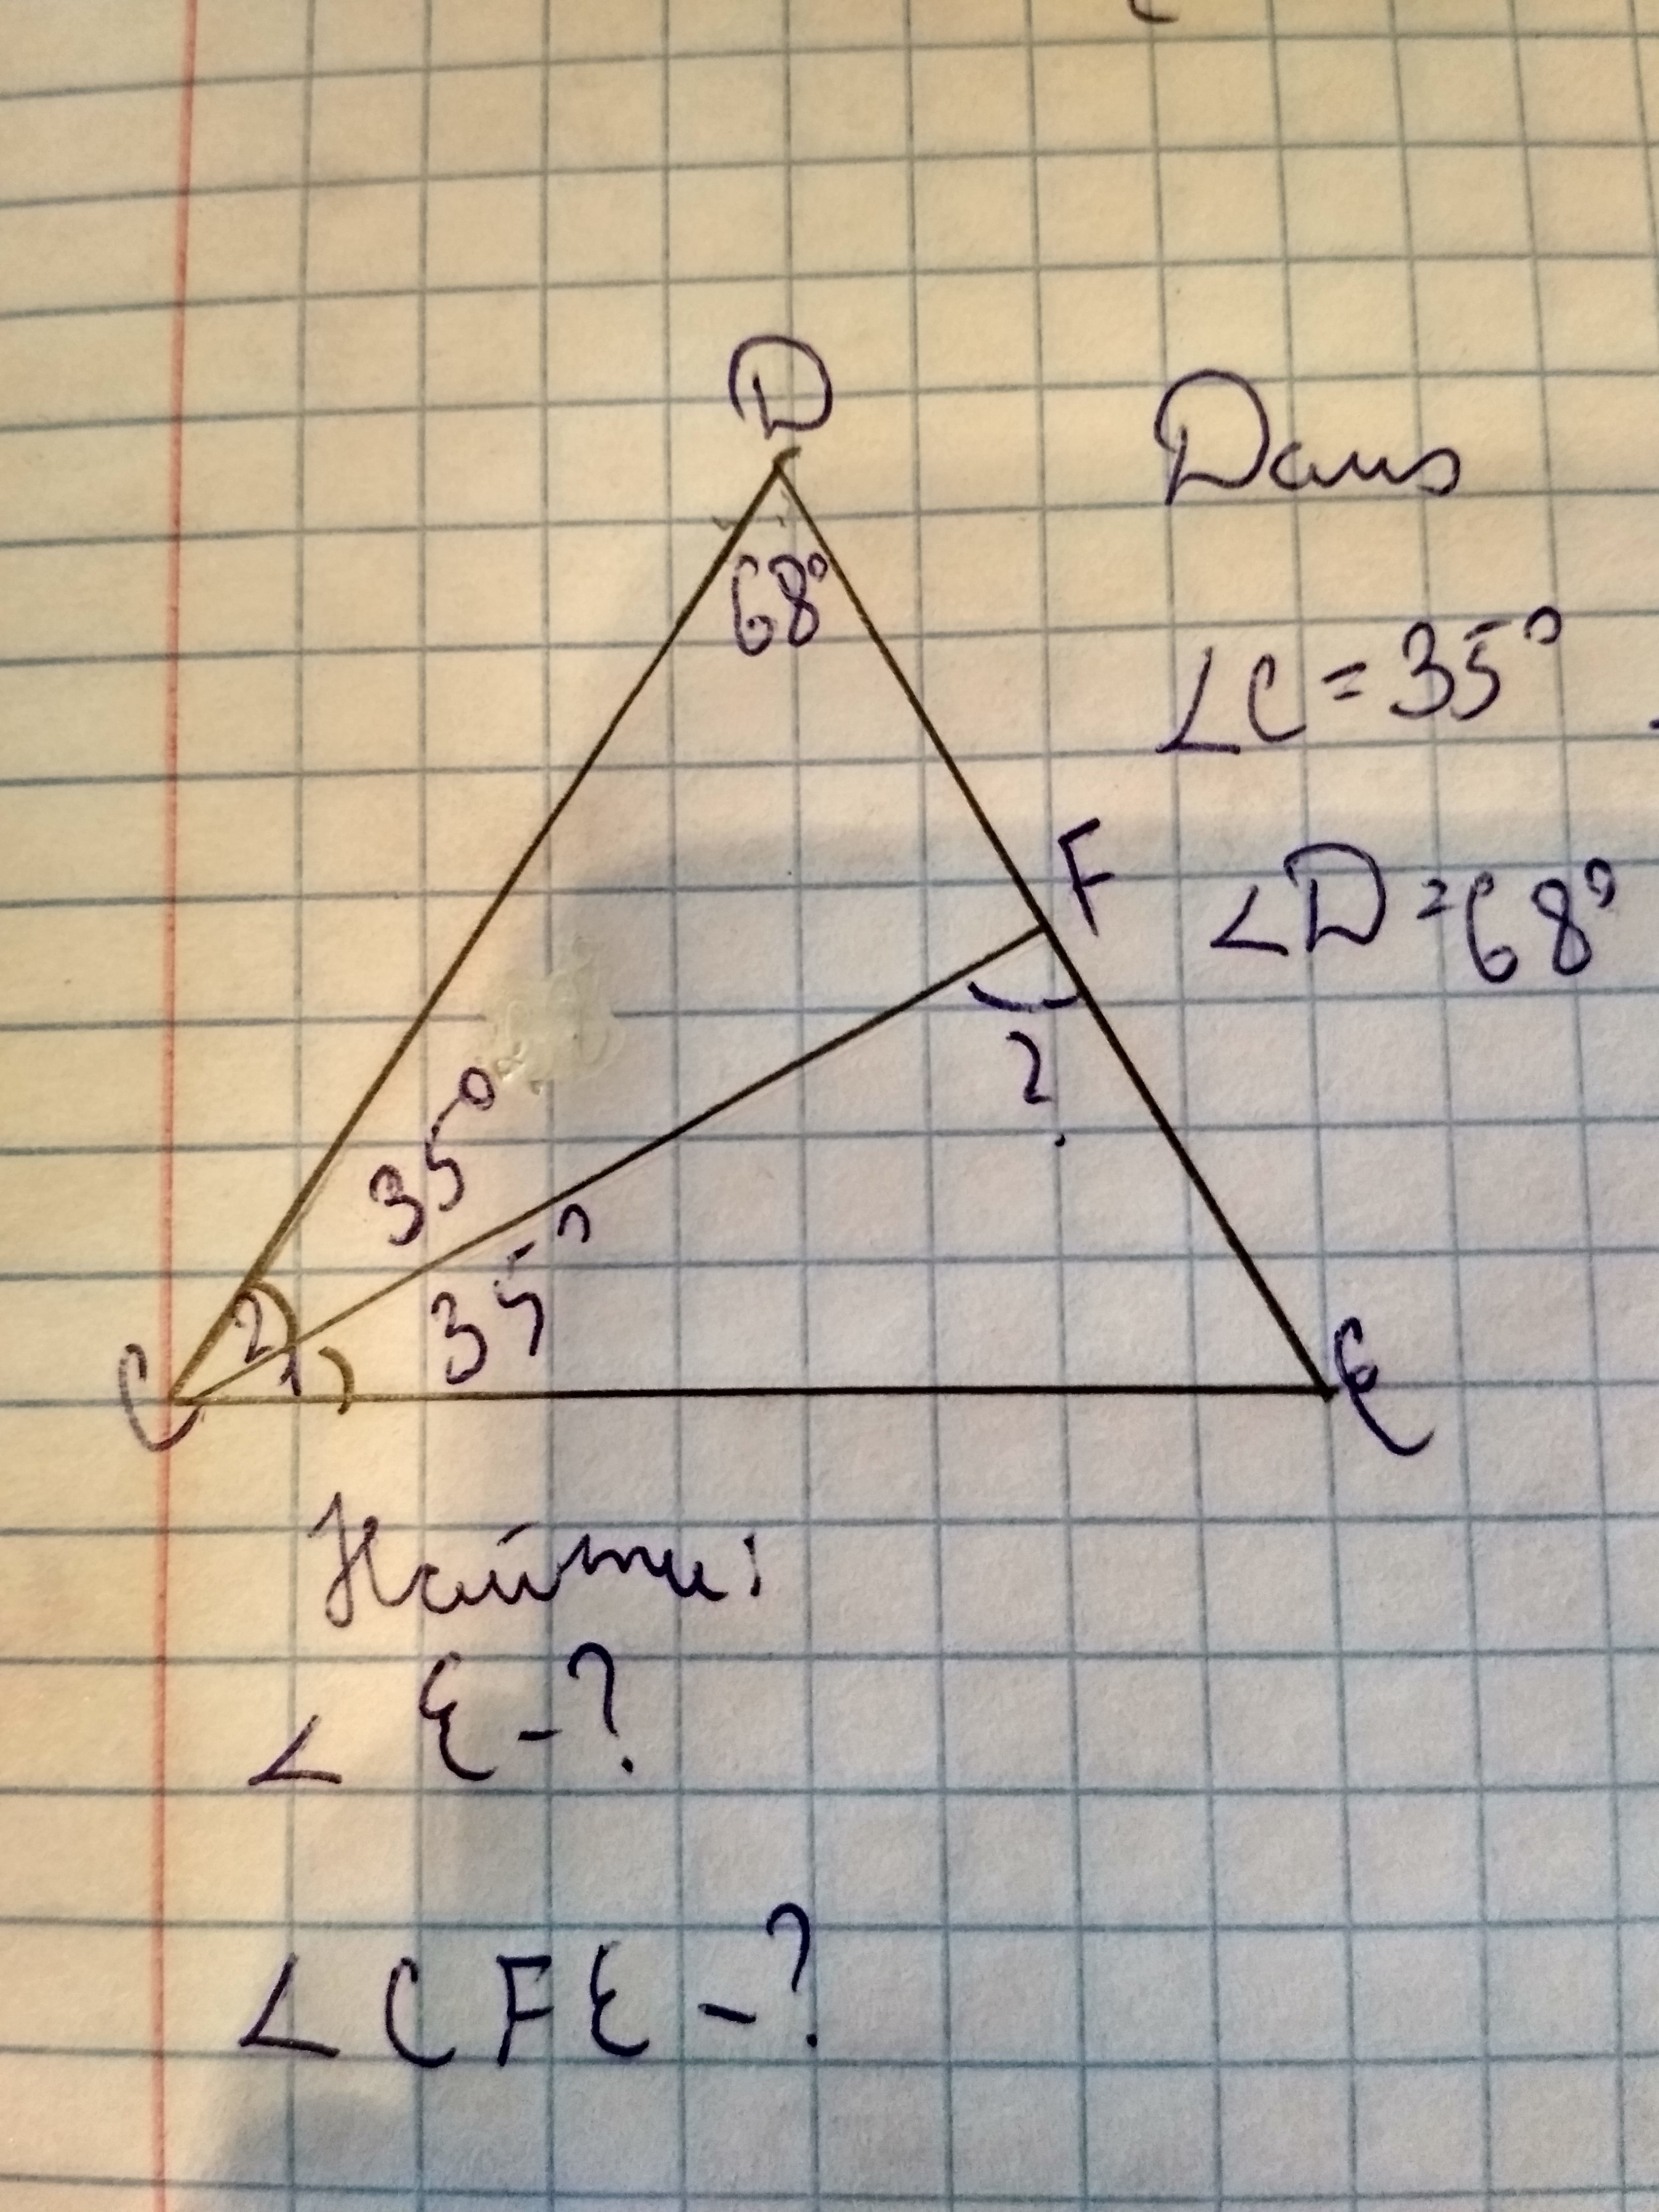 D
Дано
68°
∠C = 35°
F
∠D = 68°
?
35°
35°
2 1
C
E
Найти:
∠E - ?
∠CFE - ?